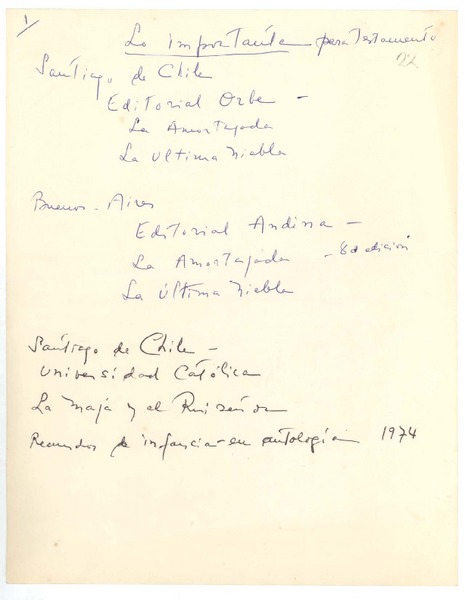 1
Lo importante para Testamento
22
Santiago de Chile
Editorial Orbe -
La Amortajada
La Ultima Niebla
Buenos-Aires
Editorial Andina -
La Amortajada - 8a edición
La Última Niebla
Santiago de Chile -
Universidad Católica
La Maja y el Ruiseñor
Recuerdos de infancia - en antología 1974